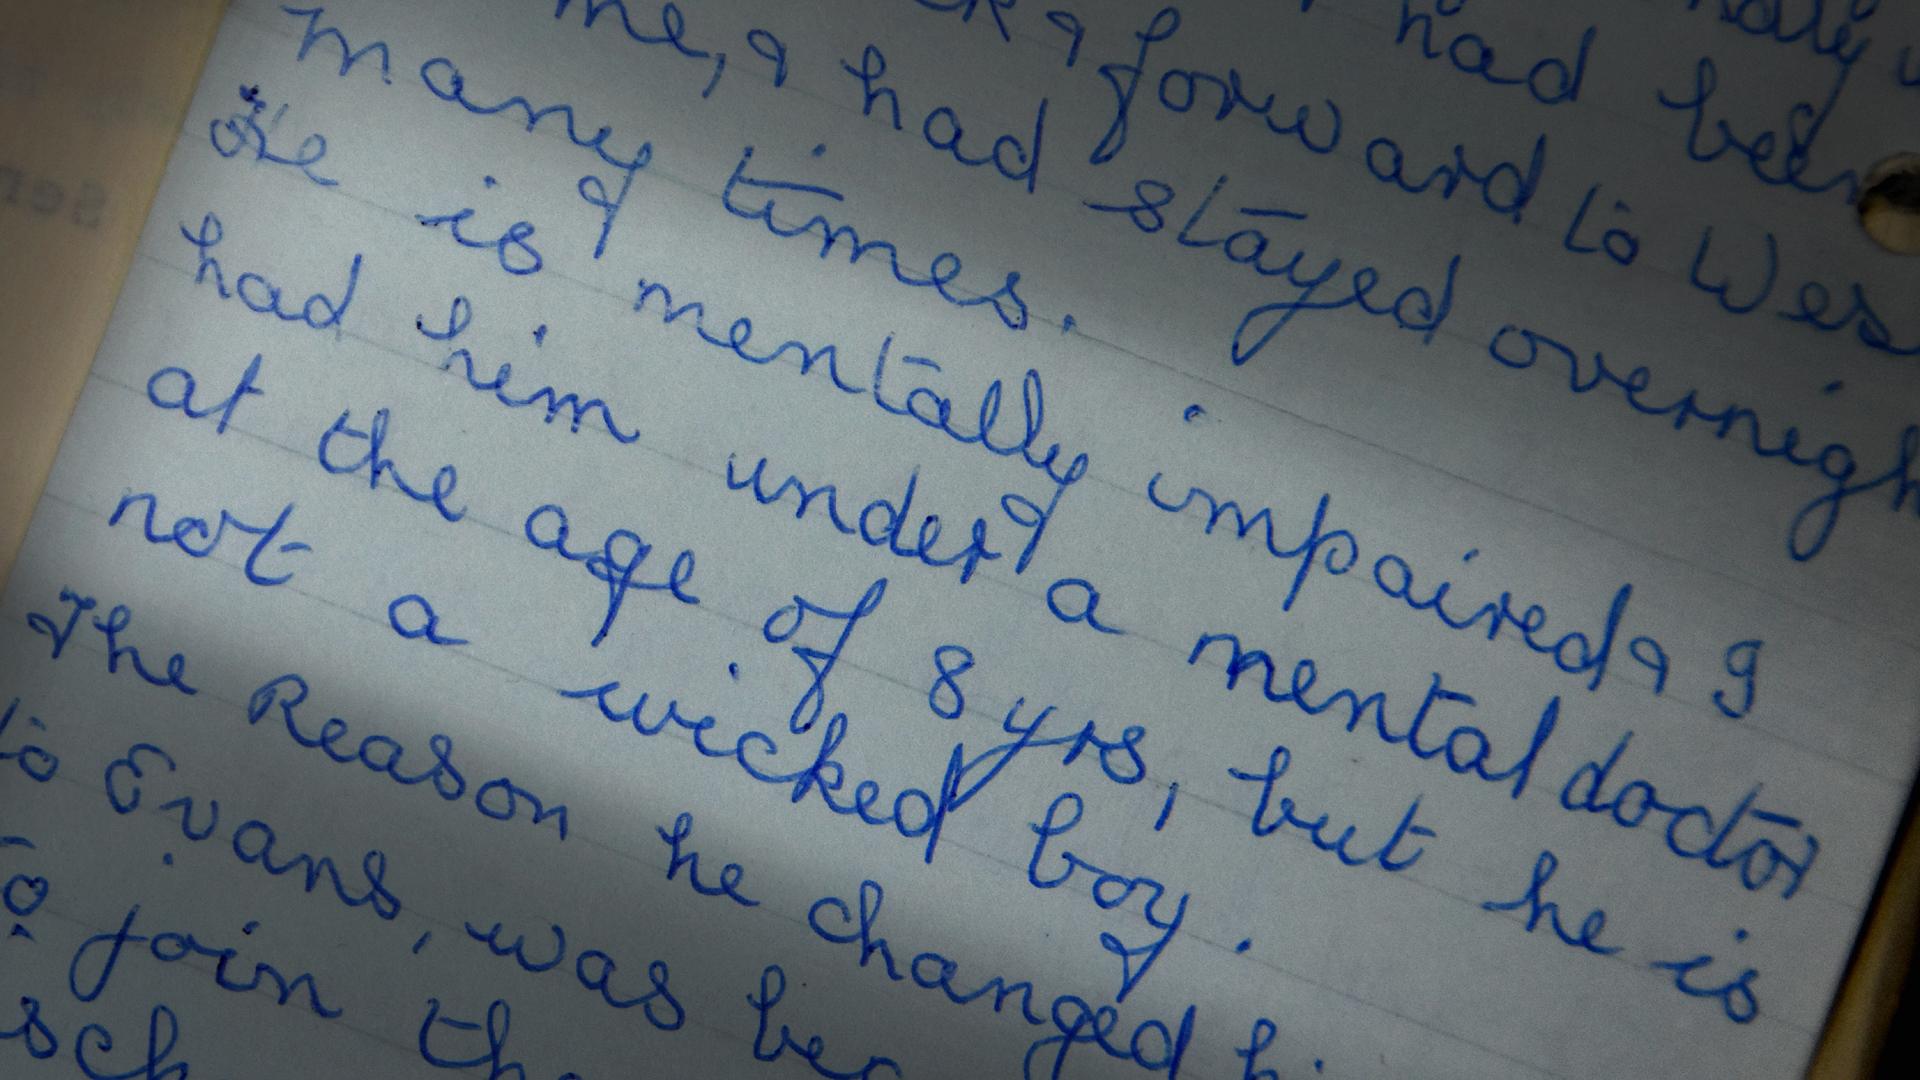 had been
& forward to Wes
me, & had stayed overnigh
many times.
He is mentally impaired & I
had him under a mental doctor
at the age of 8 yrs, but he is
not a wicked boy.
The Reason he changed hi
to Evans, was bec
to join the
sch